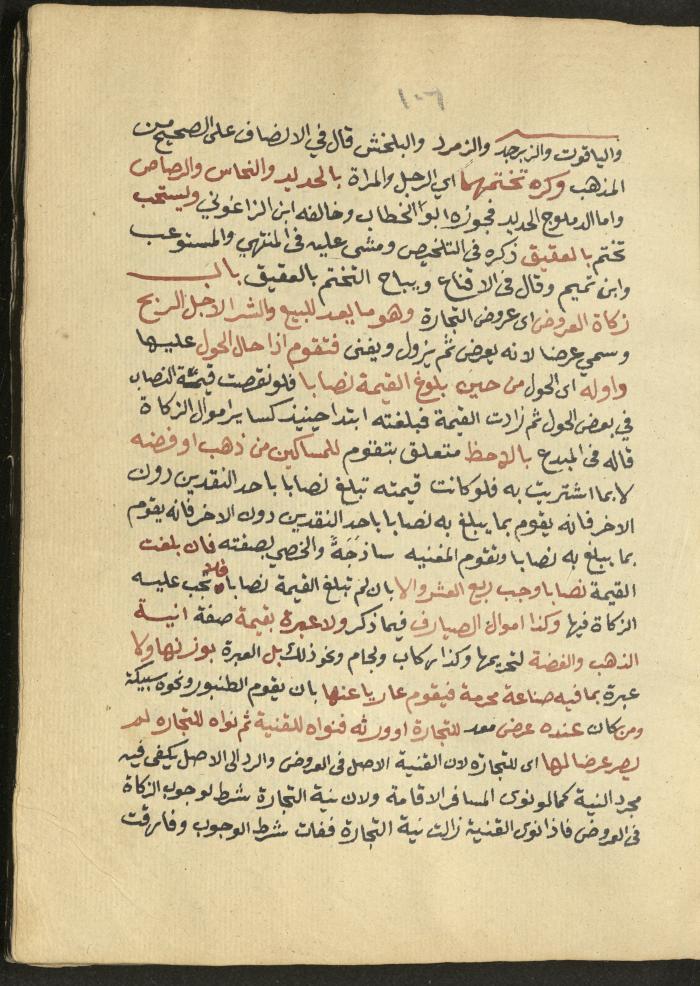 ١٠٦
والياقوت والزبرجد والزمرد والبلخش قال في الانصاف على الصحيح من
المذهب وكره تختمهما اي الرجل والمراة بالحديد والنحاس والرصاص
واما الدملوج الحديد فجوزه ابو الخطاب وخالفه ابن الزاغوني ويستحب
تختم بالعقيق ذكره في التلخيص ومشى عليه في المنتهي والمستوعب
وابن تميم وقال في الاقناع ويباح التختم بالعقيق باب
زكاة العروض اى عروض التجارة وهو ما يعد للبيع والشرا لاجل الربح
وسمي عرضا لانه يعرض ثم يزول ويفنى فتقوم اذا حال الحول عليها
واوله اى الحول من حين بلوغ القيمة نصابا فلو نقصت قيمة النصاب
في بعض الحول ثم زادت القيمة فبلغته ابتدا حينيذ كساير اموال الزكاة
قاله في المبدع بالاحظ متعلق بتقوم للمساكين من ذهب او فضه
لا بما اشتريت به فلو كانت قيمته تبلغ نصابا باحد النقدين دون
الاخر فانه يقوم بما يبلغ به نصابا باحد النقدين دون الاخر فانه يقوم
بما يبلغ به نصابا وتقوم المغنيه ساذجة والخصي بصفته فان بلغت
القيمة نصابا وجب ربع العشر والا بان لم تبلغ القيمة نصابا فلا تجب عليه
الزكاة فيها وكذا اموال الصيارف فيما ذكر ولا عبرة بقيمة صفة انية
الذهب والفضة لتحريمها وكذا ركاب ولجام ونحو ذلك بل العبرة بوزنها ولا
عبرة بما فيه صناعة محرمة فيقوم عاريا عنها بان يقوم الطنبور ونحوه سبيكة
ومن كان عنده عرض معد للتجارة او ورثه فنواه للقنية ثم نواه للتجاره لم
يصر عرضا لها اى للتجاره لان القنية الاصل في العروض والرد الى الاصل يكفي فيه
مجرد النية كما لو نوى المسافر الاقامة ولان نية التجارة شرط لوجوب الزكاة
في العروض فاذا نوى القنية زالت نية التجارة ففات شرط الوجوب وفارقت